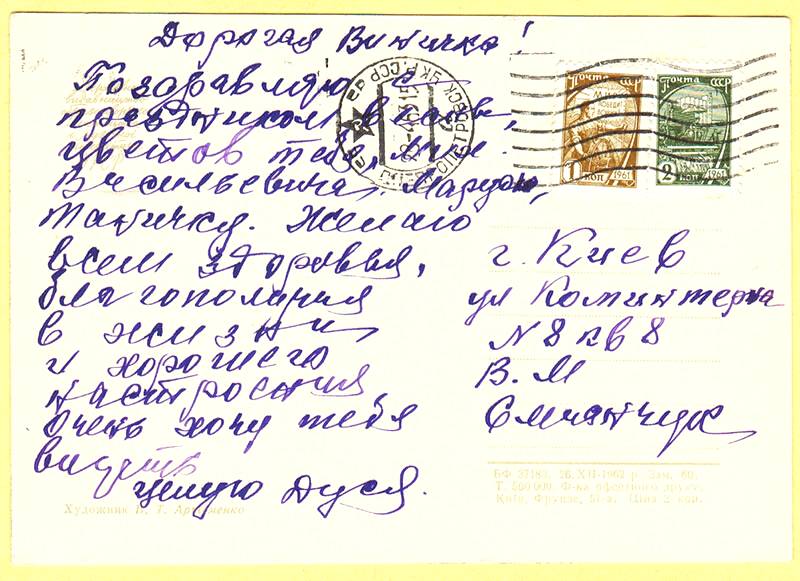 Дорогая Виничка!
Поздравляю с
праздником весны,
цветов тебя,
Васильевича, Марусю,
Таничку. Желаю
всем здоровья,
благополучия
в жизни
и хорошего
настроения
очень хочу тебя
видеть
целую Дуся.
ПОЧТА СССР
1 КОП 1961
ПОЧТА СССР
2 КОП 1961
г. Киев
ул Коминтерна
N 8 кв 8
В. М
Емчанчук
БФ 37183. 26. XII-1962 р. Зам. 69.
Т. 500 000. Ф-ка офсетного друку.
Київ, Фрунзе, 51-а. Ціна 2 коп.
Художник В. Г.